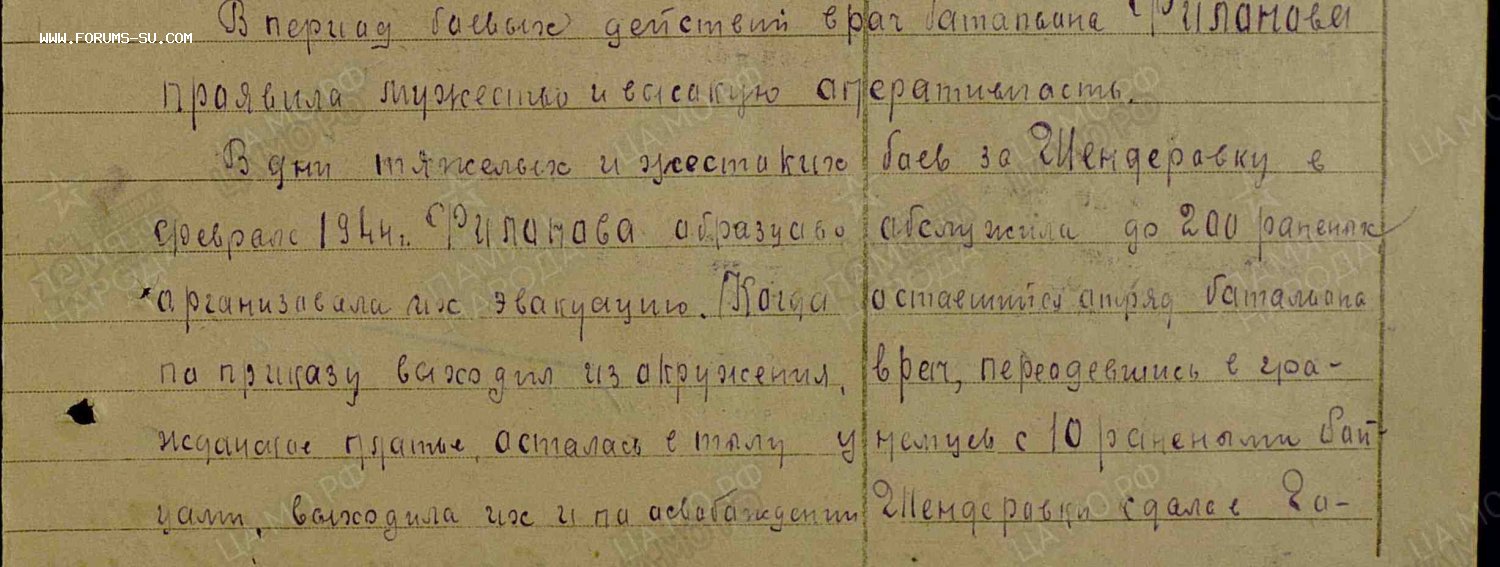 В период боевых действий врач батальона Филонова
WWW.FORUMS-SU.COM
проявила мужество и высокую оперативность.
В дни тяжелых и жестоких боев за Шендеровку в
феврале 1944 г. Филонова образцово обслужила до 200 раненых
организовала их эвакуацию. Когда оставшийся отряд батальона
по приказу выходил из окружения, врач, переодевшись в гра-
жданское платье, осталась в тылу у немцев с 10 ранеными бой-
цами, выходила их и по освобождении Шендеровки сдала в Го-